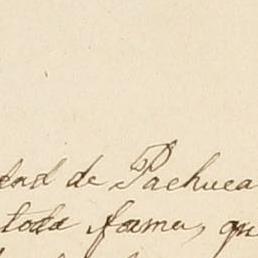 dad de Pachuca
toda forma, qu